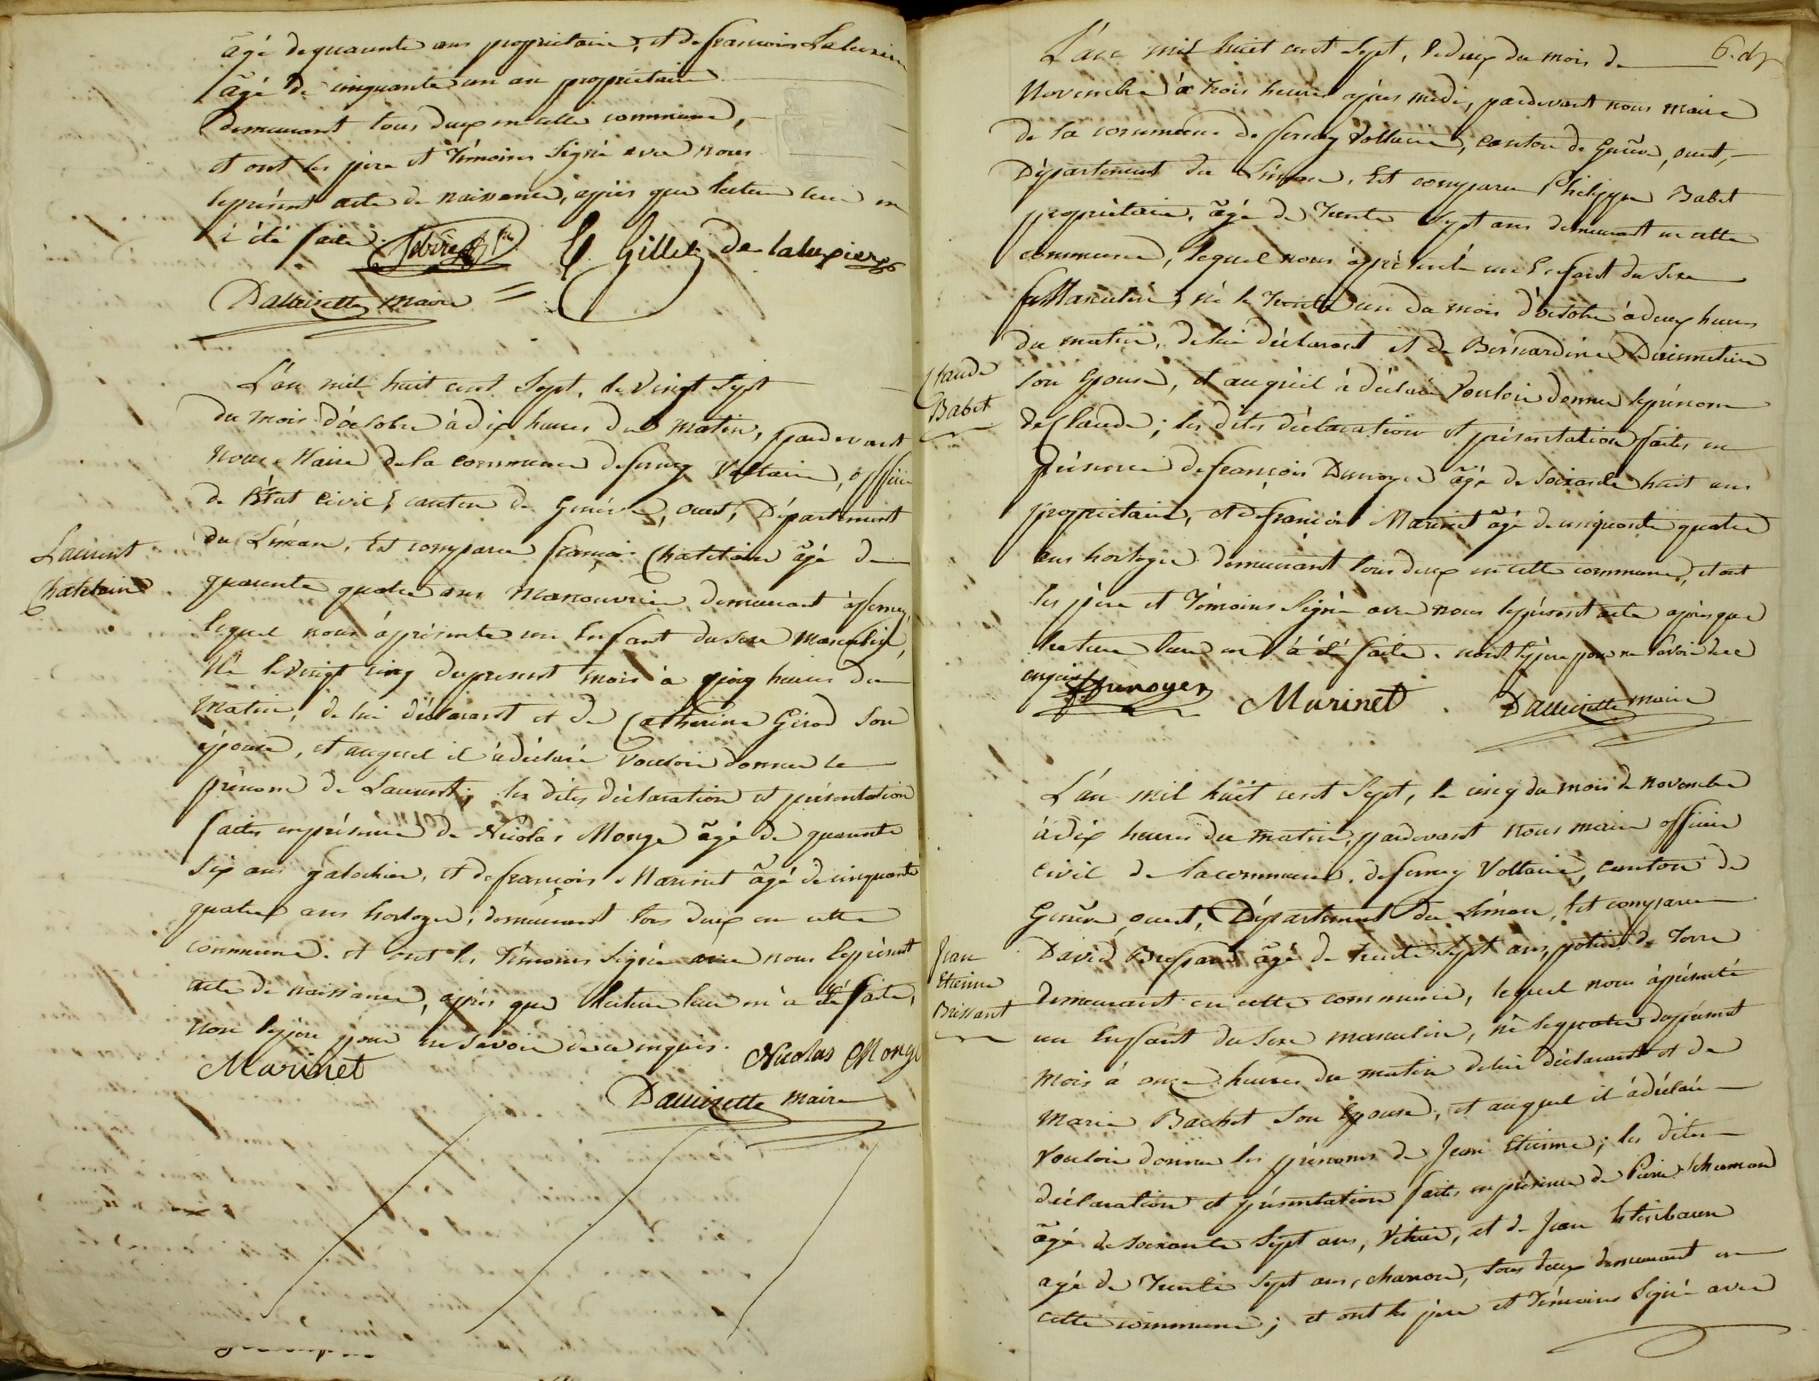 âgé de quarante ans propriétaire, et de françois
âgé de cinquante un an propriétaire
demeurant tous deux en cette commune,
et ont les père et témoins signé avec nous
le présent acte de naissance, après que lecture leur en
à été faite.
C. Gillet de Lalupier
Dalloisette maire
L'an mil huit cent sept, le vingt sept
du mois d'octobre à dix heures du matin, pardevant
nous Maire de la commune de ferney Voltaire, officier
de l'État civil, canton de Genève, ouest, Département
du Léman. Est comparu françois Chatelain âgé de
Laurent
Chatelain
quarante quatre ans manouvrier demeurant à ferney
lequel nous à présenté un Enfant du sexe masculin,
Né le vingt cinq du present mois à cinq heures du
matin, de lui déclarant et de Catherine Girod son
épouse, et auquel il à déclaré Vouloir donner le
prénom de Laurent; les dites déclaration et présentation
faites en présence de Nicolas Monge âgé de quarante
six ans galochier, et de françois Marinet âgé de cinquante
quatre ans horloger, demeurant tous deux en cette
commune. et ont les témoins signé avec nous le présent
acte de naissance, après que lecture leur en a été faite,
non le père pour ne savoir de ce enquis.
Marinet Nicolas Monge
Dalloisette maire
L'an mil huit cent sept, le deux du mois de
Novembre à trois heures après midi, pardevant nous maire
de la commune de ferney Voltaire, canton de Genève, ouest,
Département du Léman. Est comparu Philippe Babet
propriétaire, âgé de trente sept ans demeurant en cette
commune, lequel nous à présenté un Enfant du sexe
Masculin, né le trente un du mois d'octobre à deux heures
du matin, de lui déclarant et de Bernardine
Claude
Babet
son épouse, et auquel il à déclaré Vouloir donner le prénom
de Claude; les dites déclaration et présentation faites en
présence de françois Dunoyer âgé de soixante huit ans
propriétaire, et de françois Marinet âgé de cinquante quatre
ans horloger demeurant tous deux en cette commune, et ont
les père et témoins signé avec nous le présent acte après que
lecture leur en à été faite. non le père pour ne savoir de ce
enquis
Dunoyer Marinet Dalloisette maire
L'an mil huit cent sept, le cinq du mois de novembre
à dix heures du matin, pardevant nous maire officier
civil de la commune de ferney Voltaire, canton de
Genève, ouest, Département du Léman, Est comparu
Jean
Etienne
Brissant
David Brissant âgé de trente sept ans, potier de terre
demeurant en cette commune, lequel nous à présenté
un Enfant du sexe masculin, né le quatre du présent
mois à onze heures du matin de lui déclarant et de
Marie Bachet son épouse, et auquel il à déclaré
Vouloir donner les prénoms de Jean Etienne; les dites
déclaration et présentation faites en présence de Pierre
âgé de soixante sept ans, et de Jean
agé de trente sept ans, charron, tous deux demeurant en
cette commune; et ont les père et témoins signé avec